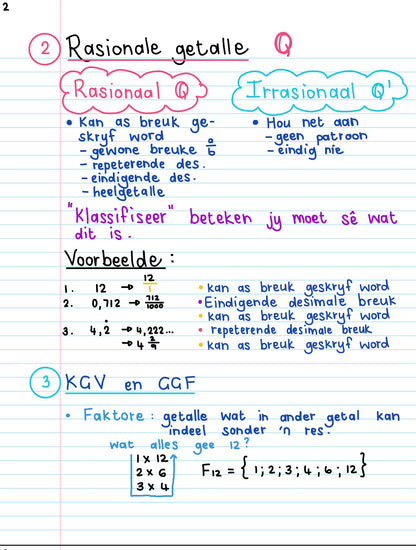 2
2 Rasionale getalle Q
Rasionaal Q
Irrasionaal Q'
• Kan as breuk ge-
skryf word
- gewone breuke a/b
- repeterende des.
- eindigende des.
- heelgetalle
• Hou net aan
- geen patroon
- eindig nie
"Klassifiseer" beteken jy moet sê wat
dit is.
Voorbeelde:
1. 12 → 12/1 • kan as breuk geskryf word
2. 0,712 → 712/1000 • Eindigende desimale breuk
• kan as breuk geskryf word
3. 4,2̇ → 4,222... • repeterende desimale breuk
→ 4 2/9 • kan as breuk geskryf word
3 KGV en GGF
• Faktore: getalle wat in ander getal kan
indeel sonder 'n res.
wat alles gee 12?
1 x 12
2 x 6
3 x 4
F12 = { 1; 2; 3; 4; 6; 12 }